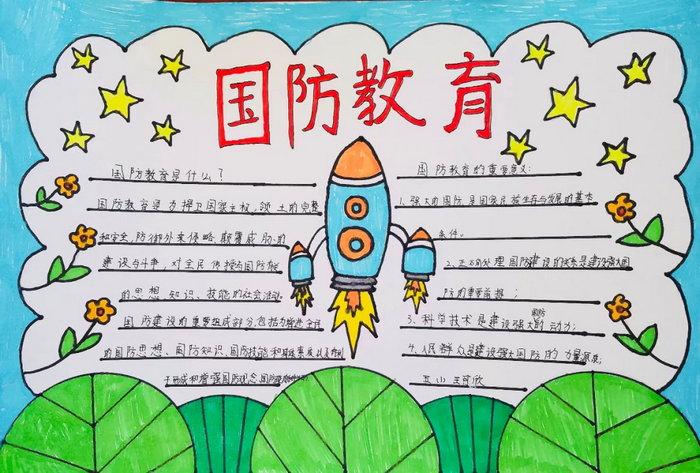 国防教育
国防教育是什么？
国防教育是为捍卫国家主权，领土的完整
和安全，防御外来侵略、颠覆威胁，的
建设与斗争，对全民传授与国防有
的思想、知识、技能的社会活动。
国防建设的重要组成部分，包括为增进全民
的国防思想、国防知识、国防技能和
形成和增强国防观念、国防
国防教育的重要意义：
1、强大的国防是国家民族生存与发展的基本
条件。
2、正确处理国防建设的关系是建设强大国
防的重要前提；
3、科学技术是建设强大的国防动力；
4、人民群众是建设强大国防的力量源泉；
五小 王可欣